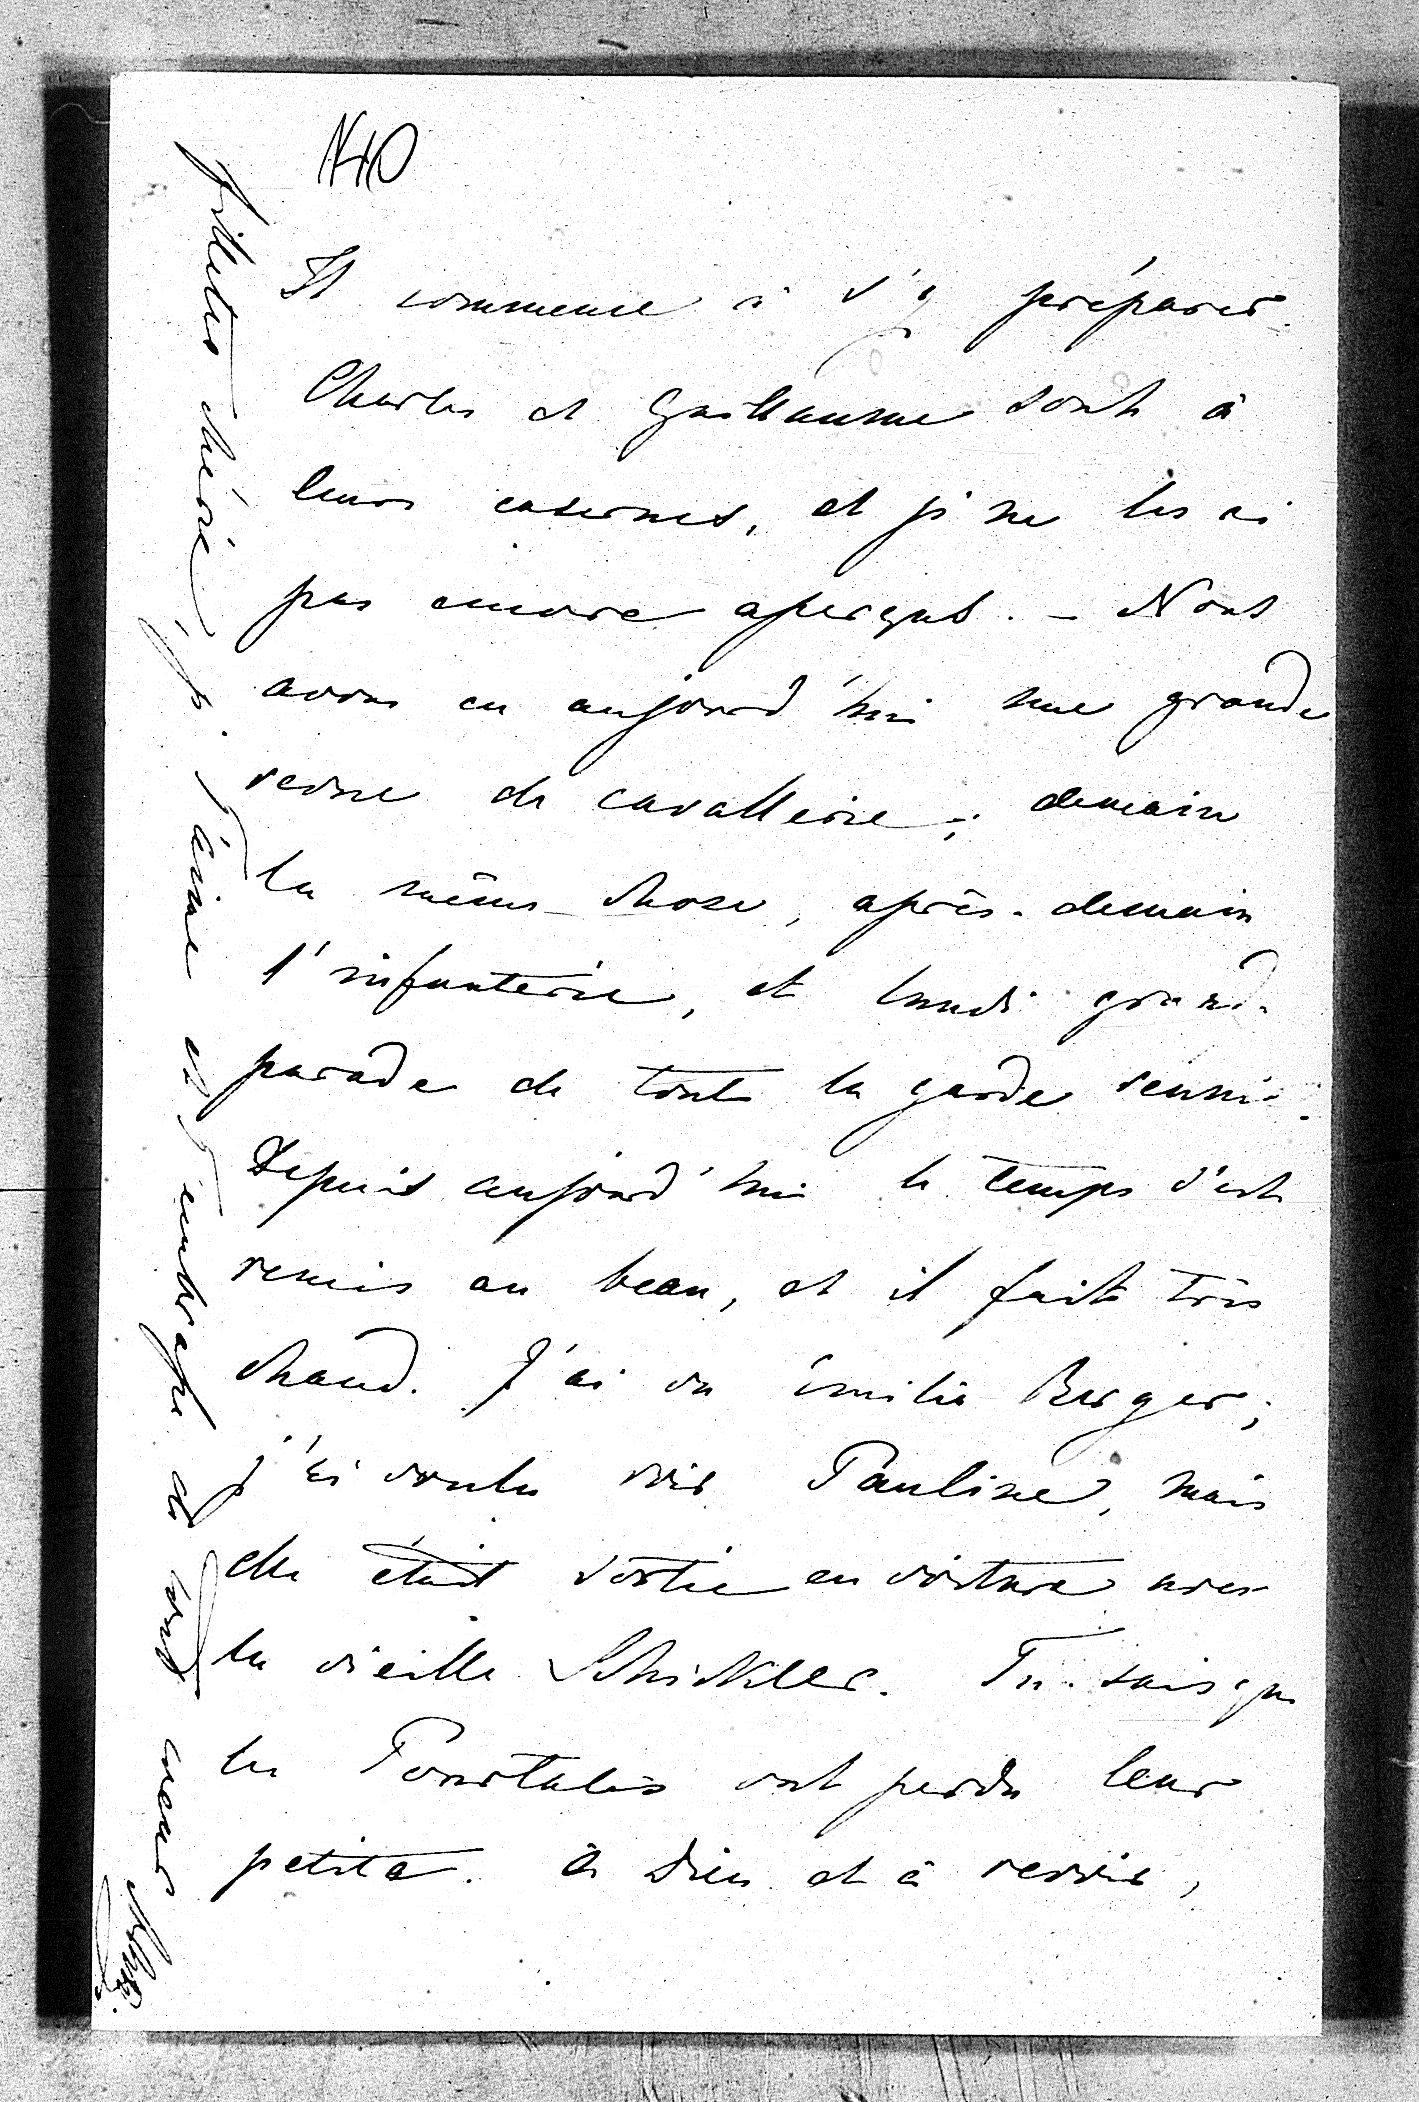 Il commence à s'y préparer.
Charles et Guillaume sont à
leurs casernes, et je ne les ai
pas encore aperçus. - Nous
avons eu aujourd'hui une grande
revue de cavallerie; demain
la même chose, après-demain
l'infanterie, et lundi grand-
parade de toute la garde réunie.
Depuis aujourd'hui le temps s'est
remis au beau, et il fait très
chaud. J'ai vu Emilie Berger;
j'ai voulu voir Pauline, mais
elle était sortie en voiture avec
la vieille Schickler. Tu sais que
les Pourtalès ont perdu leur
petite. à Dieu et à revoir,
fillette chérie, je t'aime et t'embrasse de tout coeur